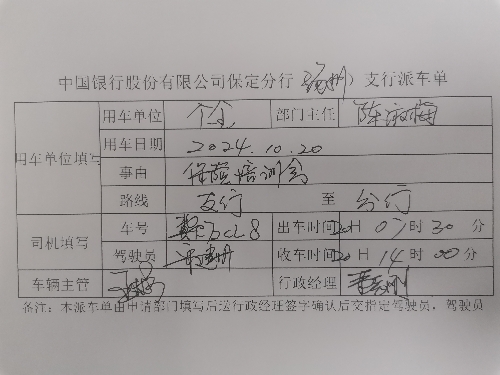 中国银行股份有限公司保定分行（涿州）支行派车单
用车单位填写 用车单位 个金 部门主任
用车日期 2024.10.20
事由 保险培训会
路线 支行 至 分行
司机填写 车号 出车时间 20日 07时30分
驾驶员 收车时间 20日 14时00分
车辆主管 行政经理
备注：本派车单由申请部门填写后送行政经理签字确认后交指定驾驶员，驾驶员